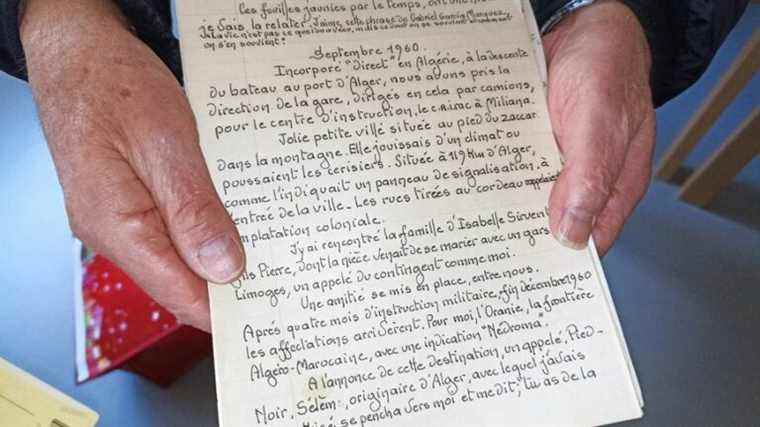 Ces feuilles jaunies par le temps, ont
je sais la relater. J'aime cette phrase de Gabriel Garcia Marquez
La vie n'est pas ce que l'on a vécu, mais ce dont on se souvient et comment
on s'en souvient".
Septembre 1960.
Incorporé "direct" en Algérie, à la descente
du bateau au port d'Alger, nous avons pris la
direction de la gare, dirigés en cela par camions,
pour le centre d'instruction, le à Miliana.
Jolie petite ville située au pied du zaccar
dans la montagne. Elle jouissais d'un climat ou
poussaient les cerisiers. Située à 119 Km d'Alger,
comme l'indiquait un panneau de signalisation, à
l'entrée de la ville. Les rues tirées au cordeau appelaient
implatation coloniale.
J'y ai rencontré la famille d'Isabelle Sirvent
fils Pierre, dont la nièce venait de se marier avec un gars
Limoges, un appelé du contingent comme moi.
Une amitié se mis en place, entre nous.
Après quatre mois d'instruction militaire, fin décembre 1960
les affectations arrivèrent. Pour moi, l'Oranie, la frontière
Algéro-Marocaine, avec une indication "Nédroma".
A l'annonce de cette destination, un appelé, Pied-
Noir, Sélem, originaire d'Alger, avec lequel j'avais
se pencha vers moi et me dit; "tu as de la